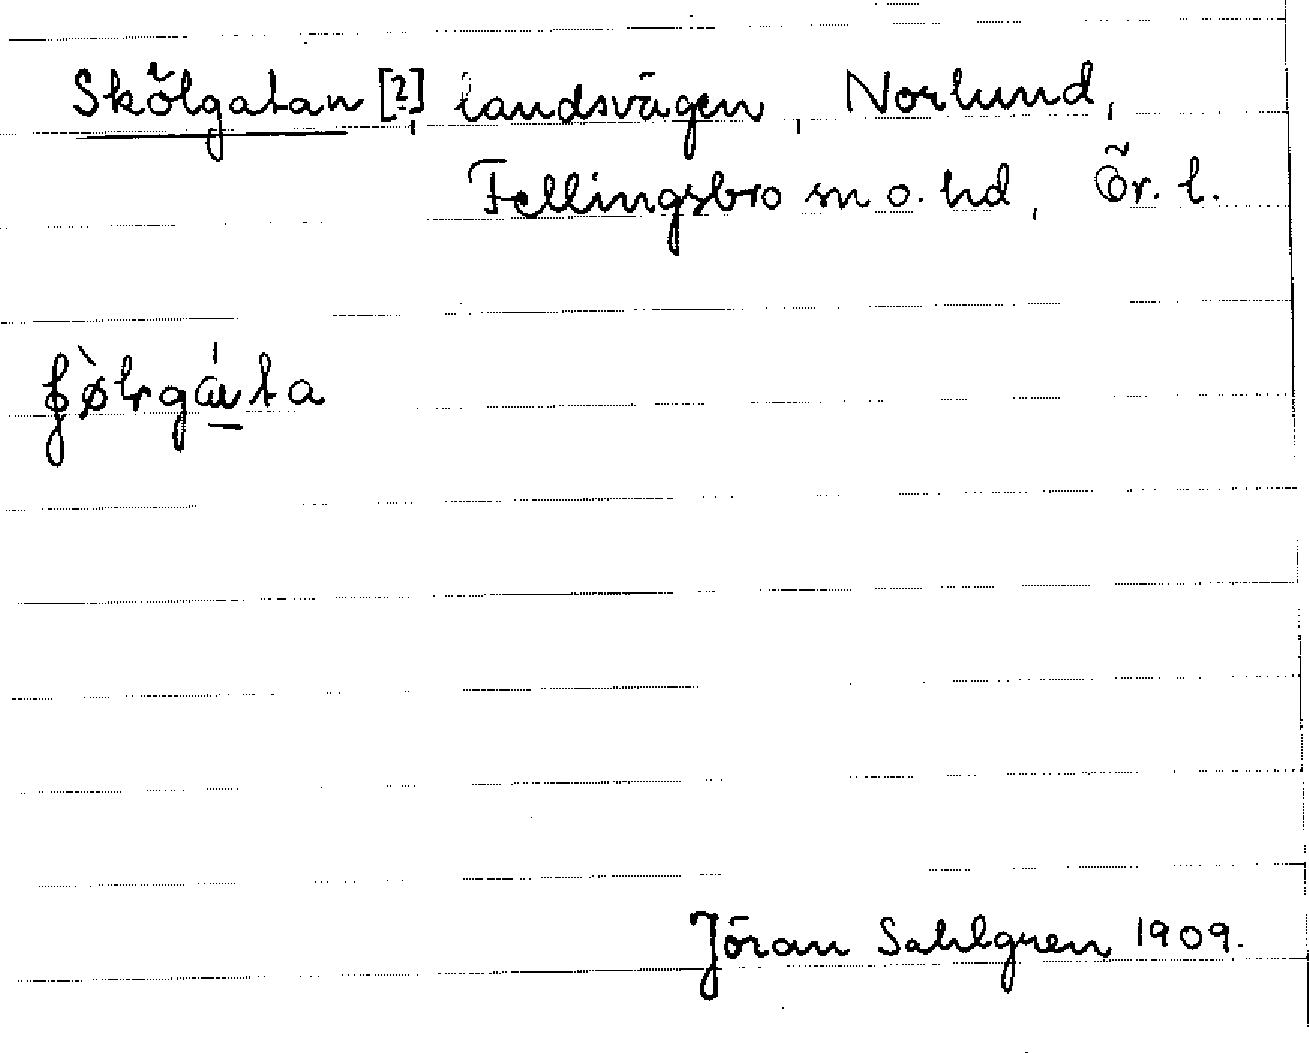 Skölgatan [?], landsvägen, Norlund,
Fellingsbro sn o. hd, Ör. l.
Jöran Sahlgren 1909.